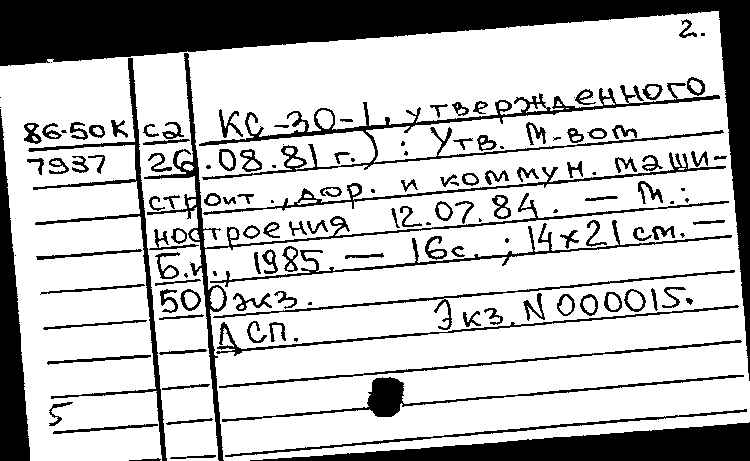 2.
86-50К с2 КС-30-1, утвержденного
7937 26.08.81 г.) : Утв. М-вом
строит., дор. и коммун. маши-
ностроения 12.07.84. — М.:
Б.и., 1985. — 16с. ; 14×21 см. —
500экз.
ДСП. Экз. N 000015.
5